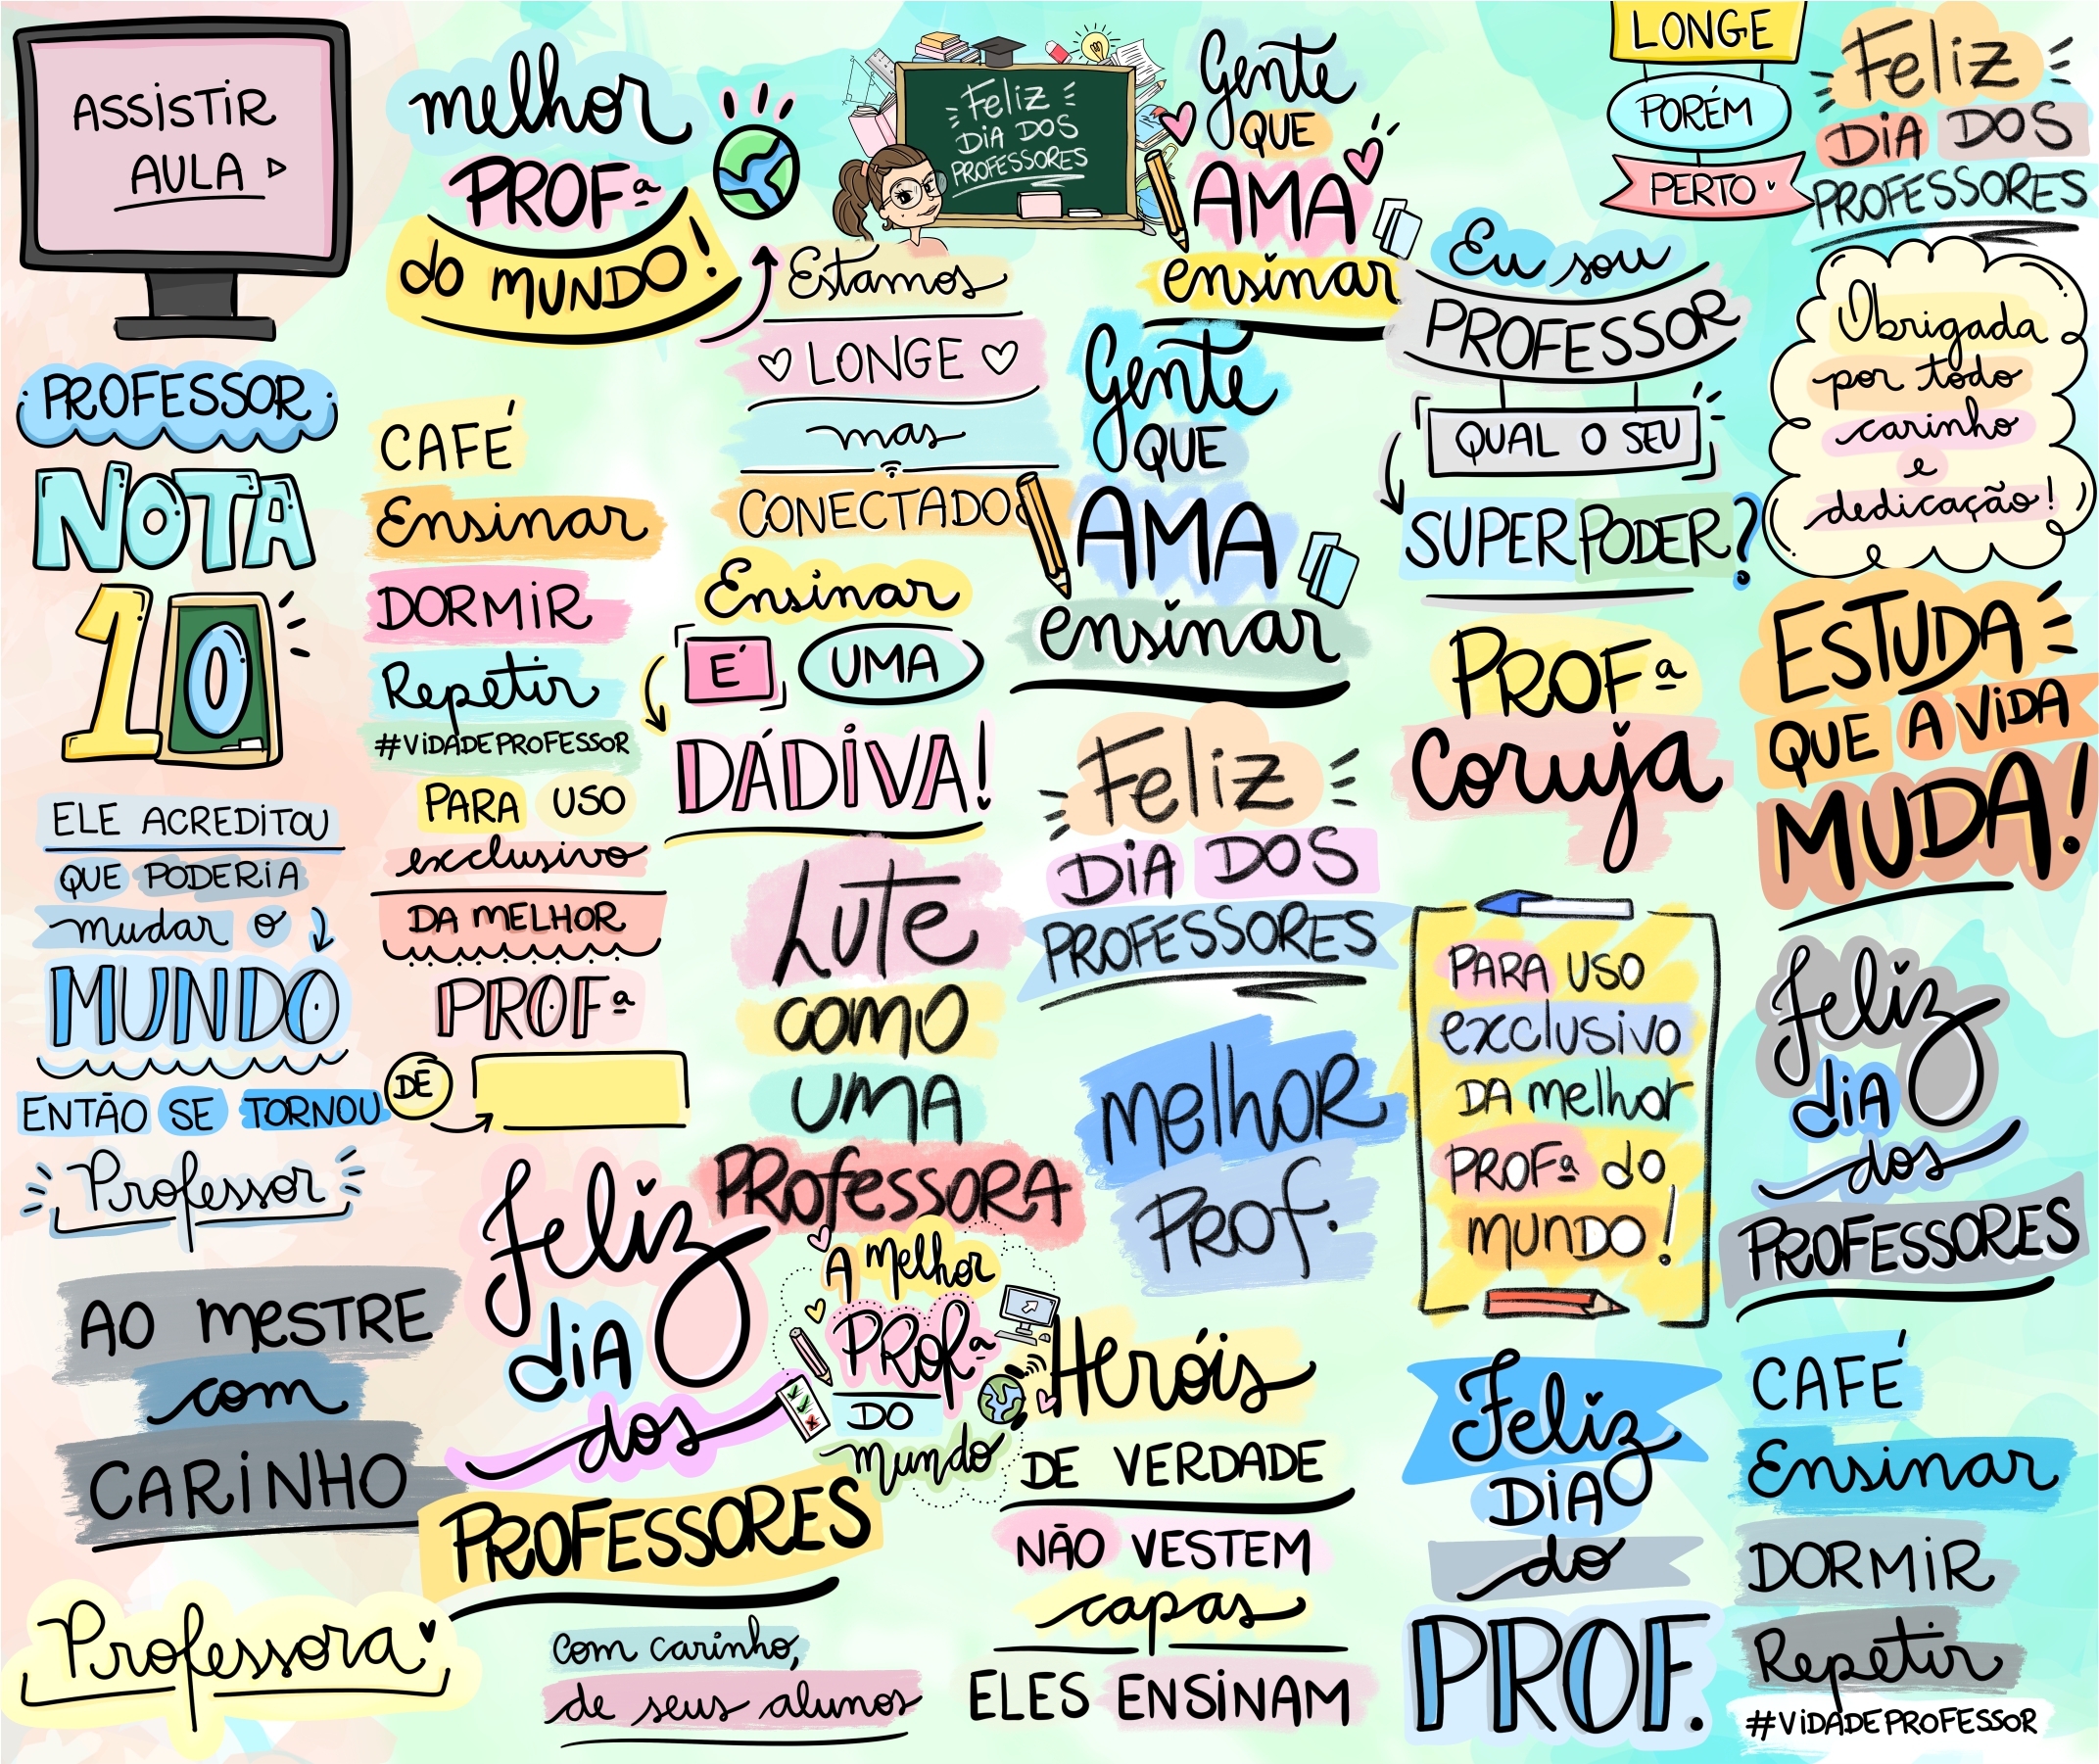 ASSISTIR
AULA
PROFESSOR
NOTA
10
ELE ACREDITOU
QUE PODERIA
mudar o
MUNDO
ENTÃO SE TORNOU
Professor
AO MESTRE
com
CARINHO
Professora
melhor
PROFª
do MUNDO!
CAFÉ
Ensinar
DORMIR
Repetir
#VIDADEPROFESSOR
PARA USO
exclusivo
DA MELHOR
PROFª
DE
Feliz
DIA
dos
PROFESSORES
com carinho,
de seus alunos
Feliz
DIA DOS
PROFESSORES
Estamos
LONGE
mas
CONECTADOS
Ensinar
É UMA
DÁDIVA!
Lute
como
UMA
PROFESSORA
A melhor
PROFª
DO
mundo
Gente
QUE
AMA
ensinar
Gente
QUE
AMA
ensinar
Feliz
DIA DOS
PROFESSORES
melhor
Prof.
Heróis
DE VERDADE
NÃO VESTEM
capas
ELES ENSINAM
LONGE
PORÉM
PERTO
Eu sou
PROFESSOR
QUAL O SEU
SUPERPODER?
PROFª
Coruja
PARA USO
exclusivo
DA melhor
PROFª do
MUNDO!
Feliz
DIA
do
PROF.
Feliz
DIA DOS
PROFESSORES
Obrigada
por todo
carinho
e
dedicação!
ESTUDA
QUE A VIDA
MUDA!
Feliz
DIA
dos
PROFESSORES
CAFÉ
Ensinar
DORMIR
Repetir
#VIDADEPROFESSOR